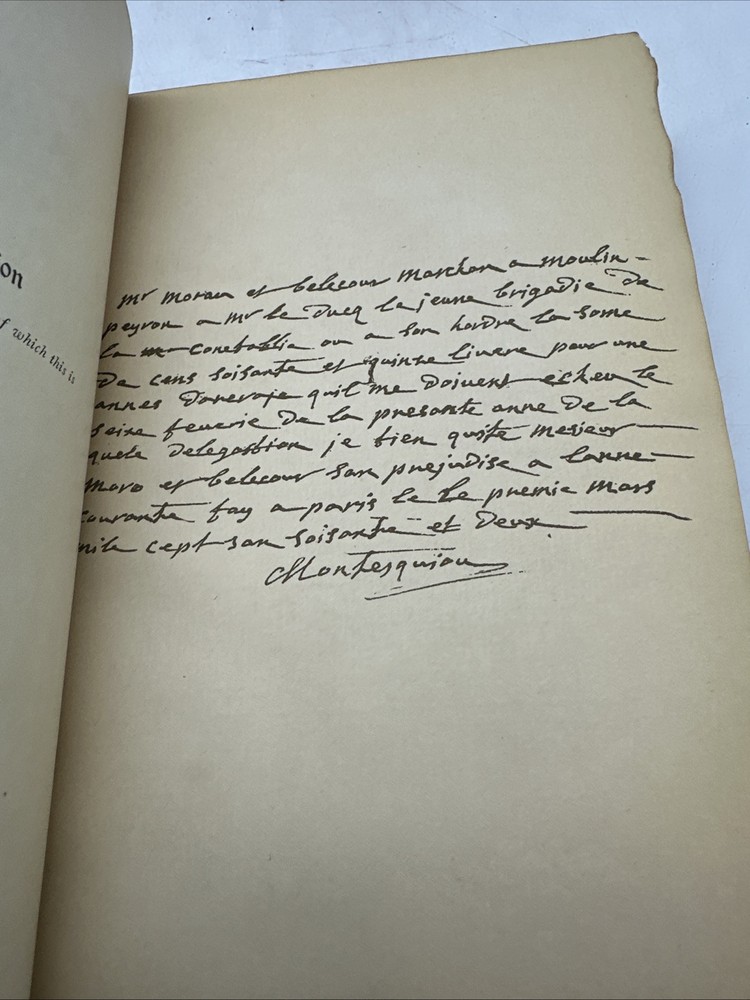 on
f which this is
mr morau et belecour marchan a moulin-
peyron a mr le ducq le jeune brigadie de
la conetablia ou a son hordre la some
de cens soisante et quinse livere pour une
annes dareraje quil me doivent echeu le
seixe feverie de la presante anne de la
quele delegastion je tien quste mesieur
moro et belecour san prejudise a lanne
courante fay a paris le le premie mars
mile cept san soisante et deux
Montesquiou